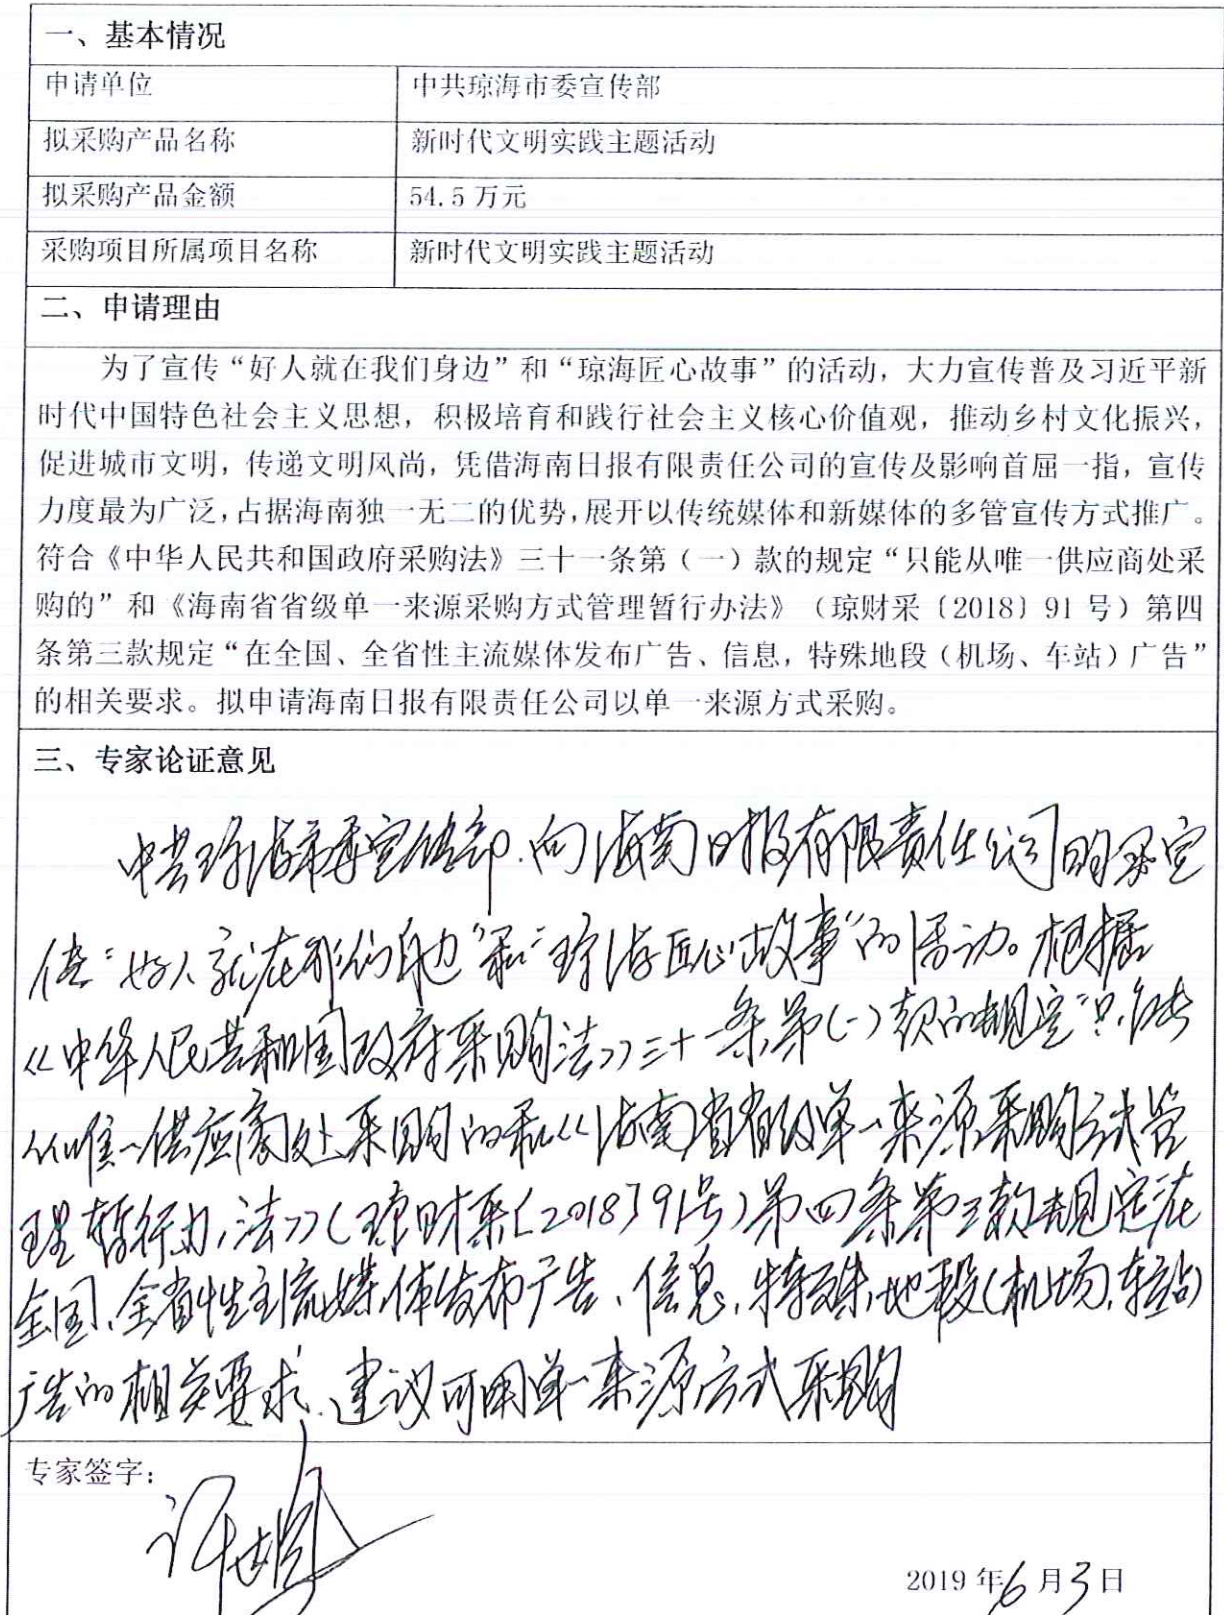 一、基本情况
申请单位 中共琼海市委宣传部
拟采购产品名称 新时代文明实践主题活动
拟采购产品金额 54.5 万元
采购项目所属项目名称 新时代文明实践主题活动
二、申请理由
为了宣传“好人就在我们身边”和“琼海匠心故事”的活动，大力宣传普及习近平新
时代中国特色社会主义思想，积极培育和践行社会主义核心价值观，推动乡村文化振兴，
促进城市文明，传递文明风尚，凭借海南日报有限责任公司的宣传及影响首屈一指，宣传
力度最为广泛，占据海南独一无二的优势，展开以传统媒体和新媒体的多管宣传方式推广。
符合《中华人民共和国政府采购法》三十一条第（一）款的规定“只能从唯一供应商处采
购的”和《海南省省级单一来源采购方式管理暂行办法》（琼财采〔2018〕91 号）第四
条第三款规定“在全国、全省性主流媒体发布广告、信息，特殊地段（机场、车站）广告”
的相关要求。拟申请海南日报有限责任公司以单一来源方式采购。
三、专家论证意见
中共琼海市委宣传部.向海南日报有限责任公司购买宣
传“好人就在我们身边”和“琼海匠心故事”的活动。根据
《中华人民共和国政府采购法》三十一条第(一)款的规定“只能
从唯一供应商处采购的和《海南省省级单一来源采购方式管
理暂行办法》(琼财采〔2018〕91号)第四条第三款规定在
全国、全省性主流媒体发布广告、信息,特殊地段(机场、车站)
广告的相关要求、建议可用单一来源方式采购
专家签字：
2019 年 6 月 3 日